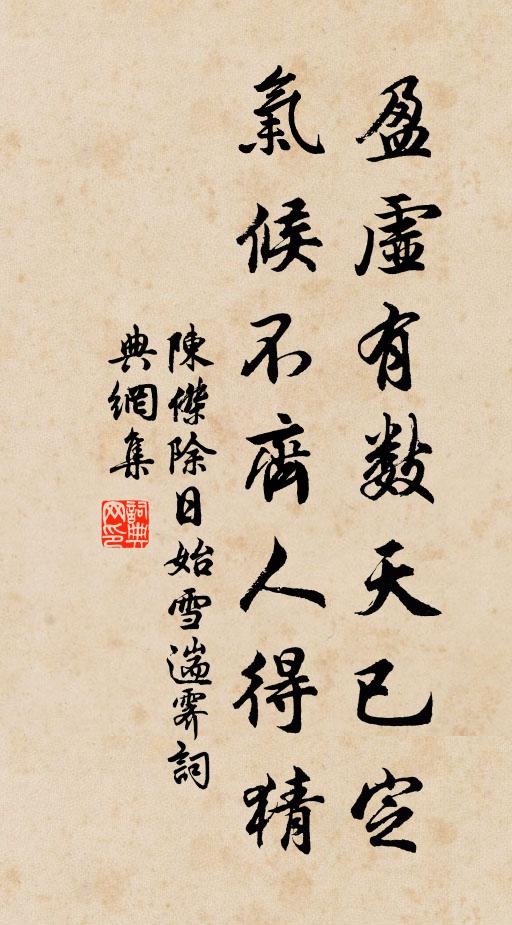 盈虛有數天已定
氣候不齊人得猜
陳傑除日始雪遄霽詞
典網集
詞典網印